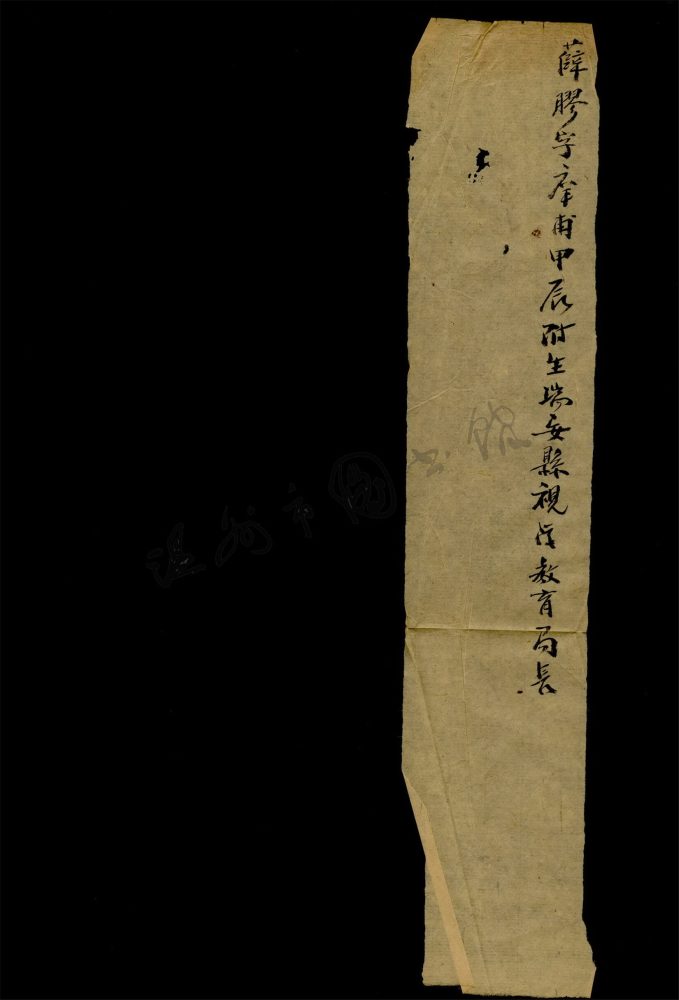 薛膠字庠甫甲辰附生瑞安縣視教育局長
温州市图书馆